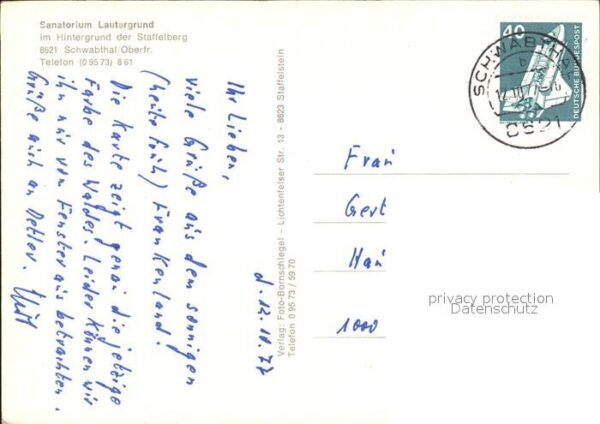 Sanatorium Lautergrund
im Hintergrund der Staffelberg
8621 Schwabthal/Oberfr.
Telefon (0 95 73) 8 61
d. 12.10.77
Ihr Lieben,
viele Grüße aus dem sonnigen
(heute früh) Frankenland!
Die Karte zeigt genau die jetzige
Farbe des Waldes. Leider können wir
ihn nur vom Fenster aus betrachten.
Grüße auch an Detlev.
Verlag: Foto-Bornschlegel - Lichtenfelser Str. 13 - 8623 Staffelstein
Telefon 0 95 73 / 59 70
40
DEUTSCHE BUNDESPOST
SCHWABTHAL
8621
Frau
Gert
Han
1000
privacy protection
Datenschutz